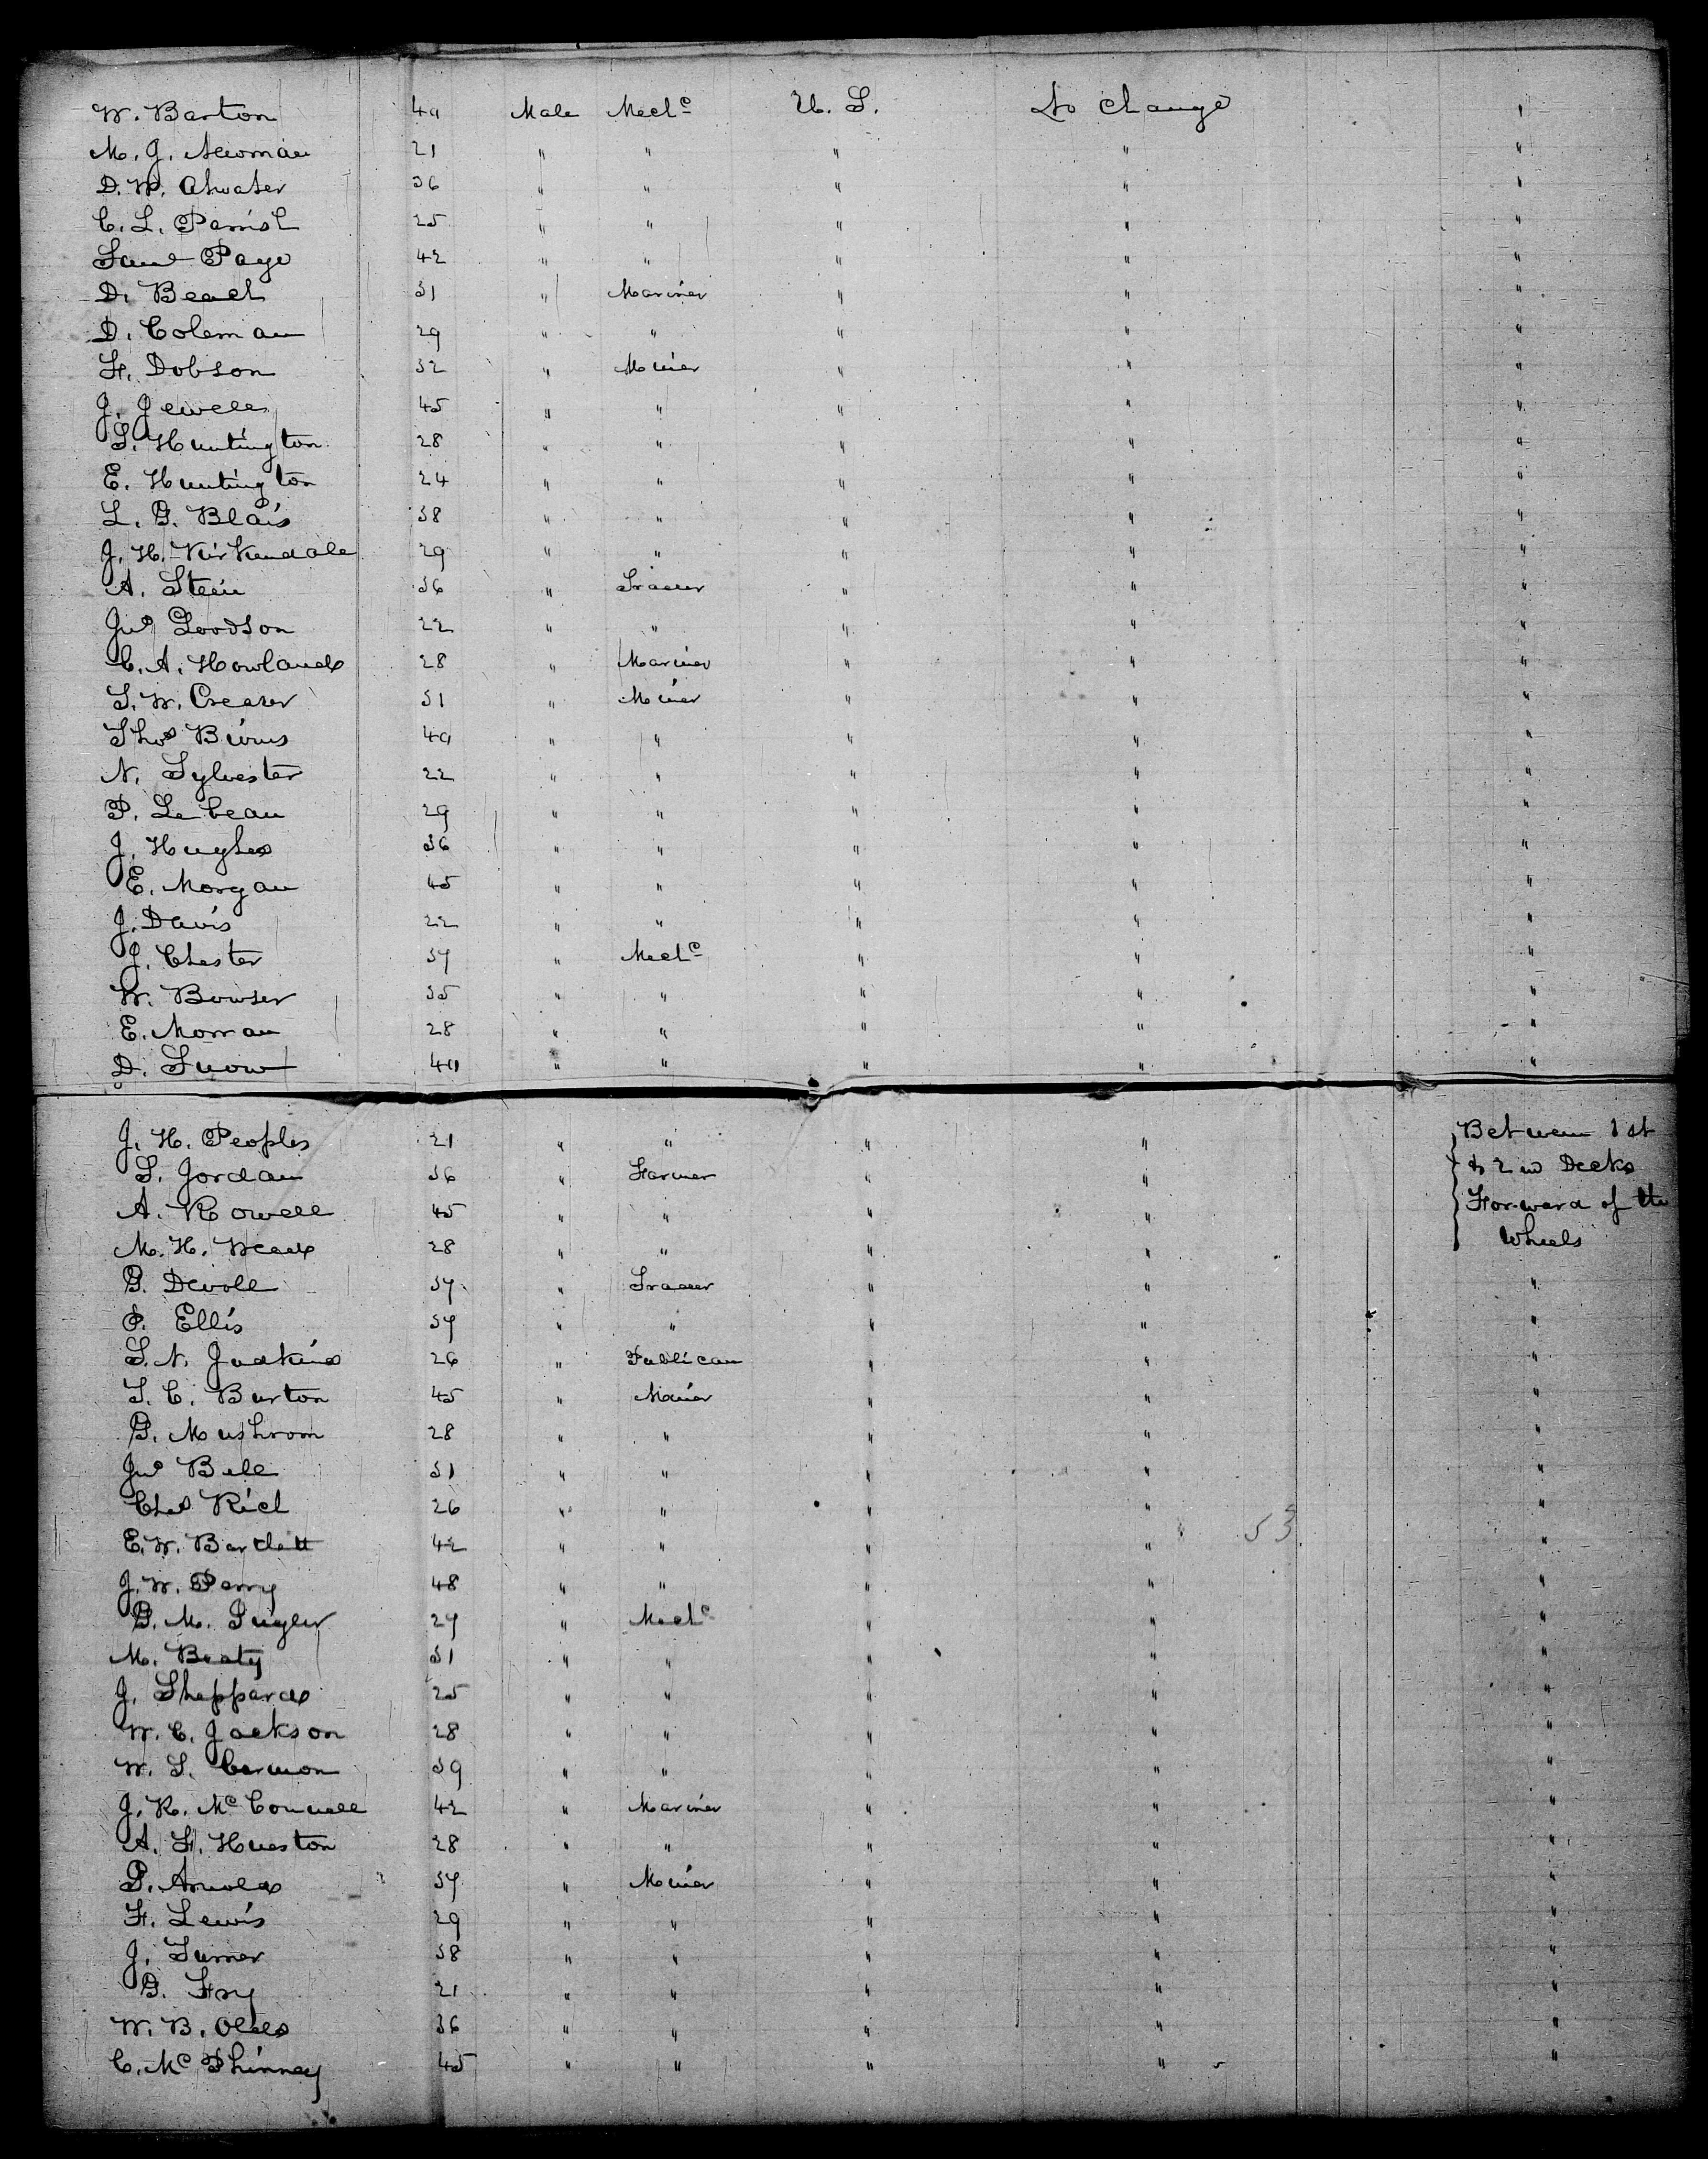 W. Barton 40 Male Mech<sup>c</sup> U. S. No change "
M. J. Newman 21 " " " " "
D. W. Atwater 36 " " " " "
C. L. Parrish 25 " " " " "
Saml Page 42 " " " " "
D. Beach 31 " Mariner " " "
D. Coleman 29 " " " " "
F. Dobson 32 " Miner " " "
J. Jewell 45 " " " " "
S. Huntington 28 " " " " "
E. Huntington 24 " " " " "
L. G. Blais 38 " " " " "
J. H. Kirkendale 29 " " " " "
A. Stein 36 " Trader " " "
Jno Goodson 22 " " " " "
C. A. Howland 28 " Mariner " " "
T. W. Creaser 31 " Miner " " "
Thos Birns 40 " " " " "
N. Sylvester 22 " " " " "
P. Le beau 29 " " " " "
J. Hughes 36 " " " " "
E. Morgan 45 " " " " "
J. Davis 22 " " " " "
J. Chester 37 " Mech<sup>c</sup> " " "
W. Bowser 35 " " " " "
E. Morran 28 " " " " "
D. Snow 40 " " " " "
J. H. Peoples 21 " " " " Between 1st
S. Jordan 36 " Farmer " " & 2nd Decks
A. Rowell 45 " " " " Forward of the
M. H. Mead 28 " " " " Wheels
G. Devoll 37 " Trader " " "
P. Ellis 37 " " " " "
S. N. Judkins 26 " Publican " " "
T. C. Burton 45 " Miner " " "
G. Mushrom 28 " " " " "
Jno Bell 31 " " " " "
Chas Rich 26 " " " " "
53
E. W. Bartlett 42 " " " " "
J. W. Perry 48 " " " " "
G. M. 27 " Mech<sup>c</sup> " " "
M. Beaty 31 " " " " "
J. Sheppard 25 " " " " "
W. C. Jackson 28 " " " " "
W. S. Cermon 39 " " " " "
J. R. McConnell 42 " Mariner " " "
A. F. Hueston 28 " " " " "
P. Arnold 37 " Miner " " "
F. Lewis 29 " " " " "
J. Turner 38 " " " " "
G. Fry 21 " " " " "
W. B. Olds 36 " " " " "
C. McPhinney 45 " " " " "